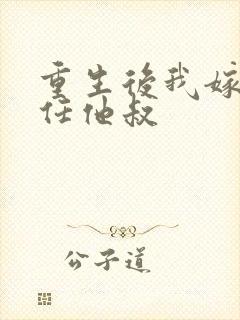 重生後我嫁
任他叔
公子道